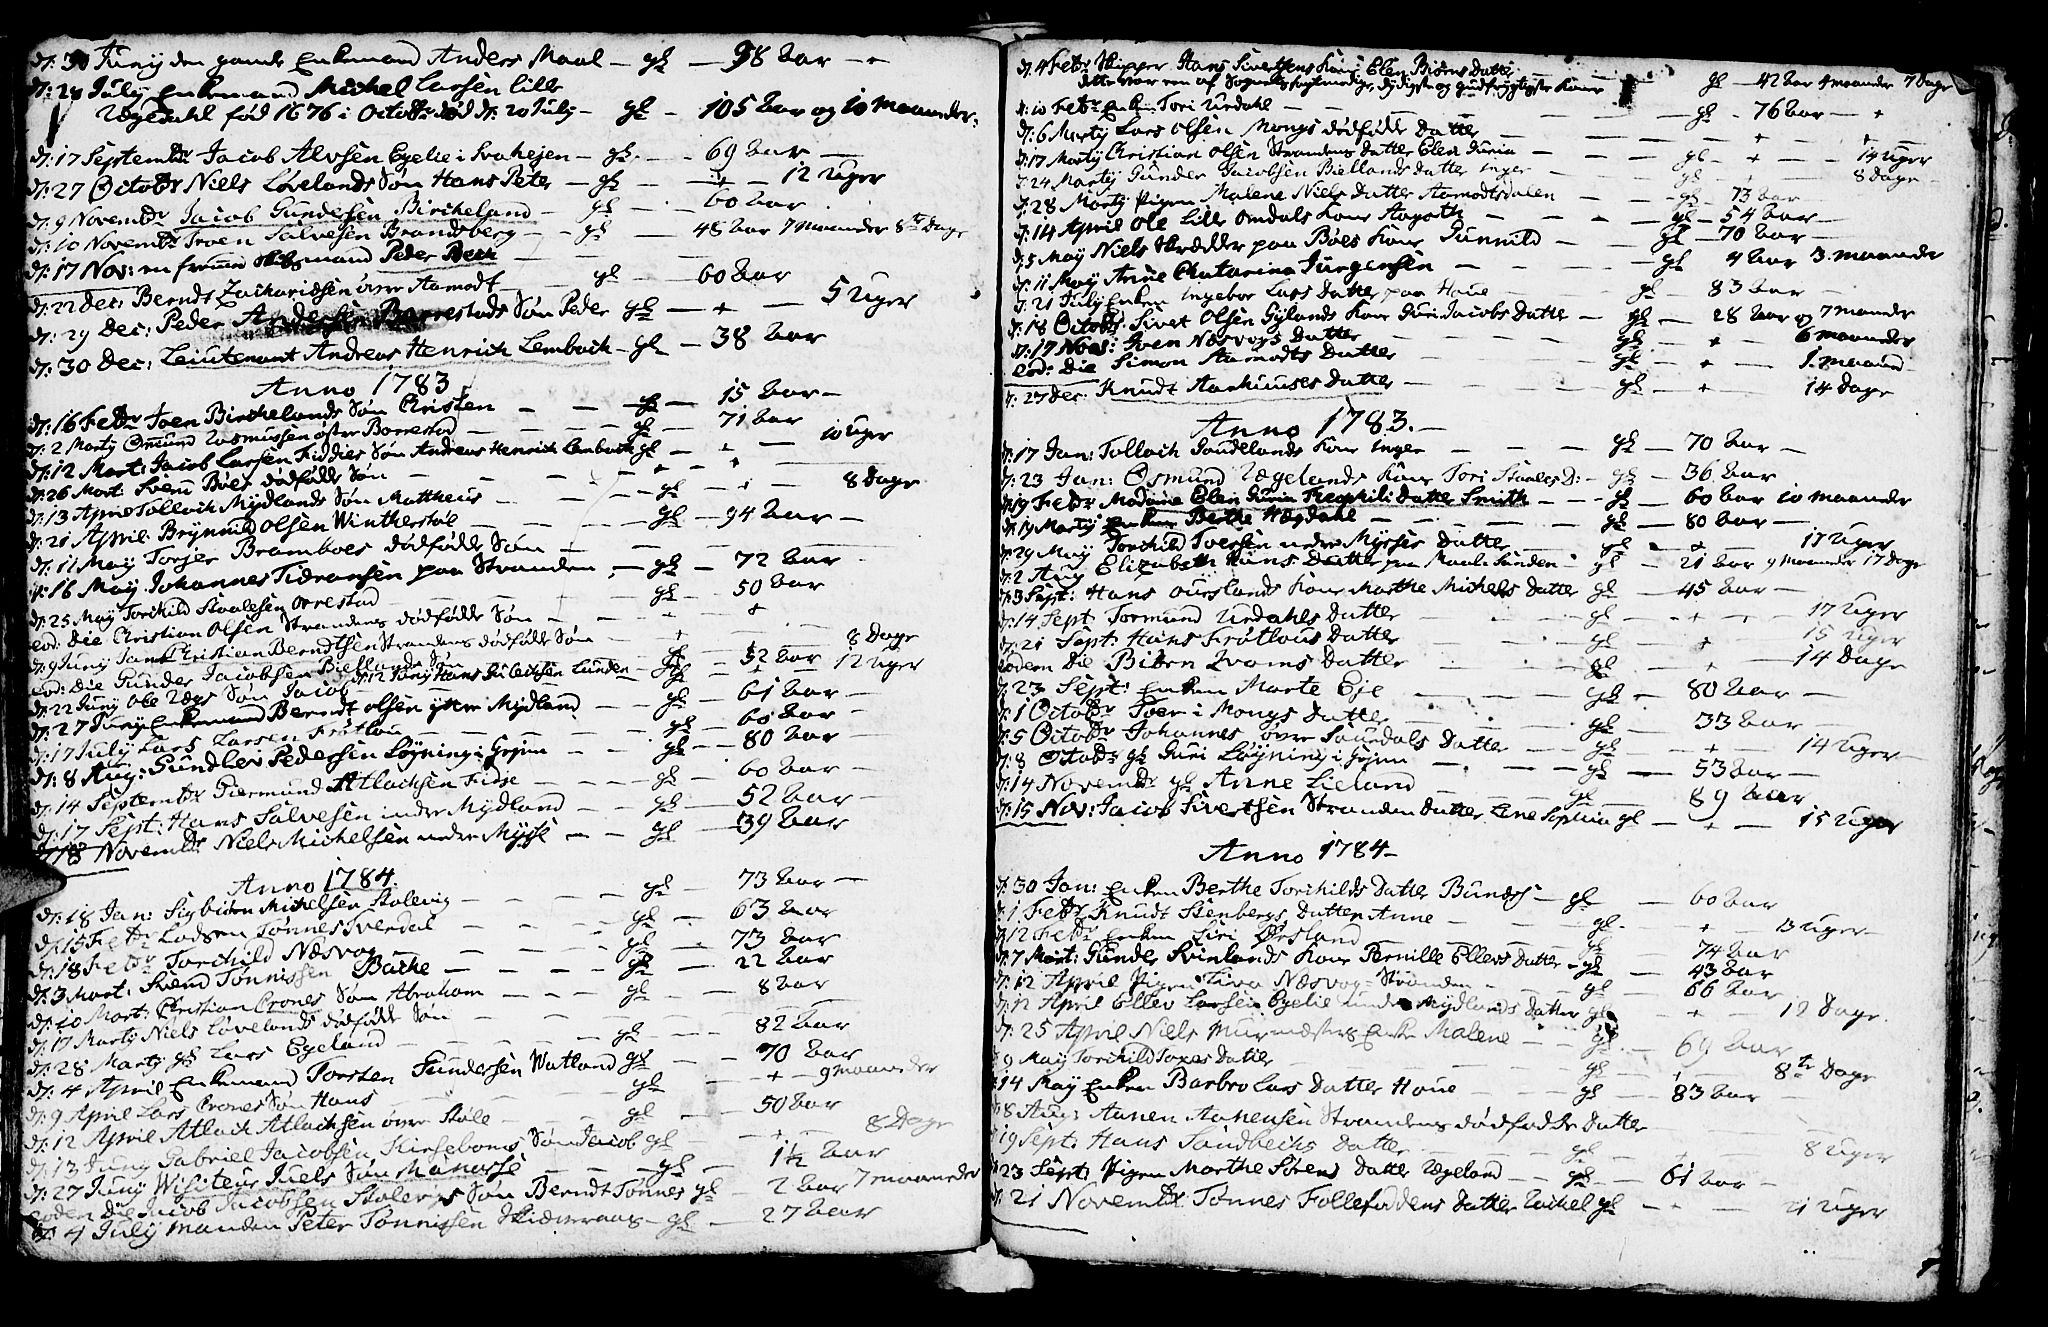 d: 30 Junÿ den gamle Enkemand Anders Maal – gl – 98 Aar –
d: 28 July Enkemand Michel Larsen lille
Ægedahl fød 1676 i Octobr død d: 20 July – gl – 105 Aar og 10 maaneder
d: 17 Septembr Jacob Alvsen Egelie i Svahejen – gl – 69 Aar –
d: 27 Octobr Niels Lövelands Søn Hans Peter – gl – + – 12 Uger
d: 9 Novembr Jacob Gundersen Bircheland – gl – 60 Aar
d: 10 Novembr Troen Salvesen Brandsberg – gl – 48 Aar 7 Maaneder 8te Dage
d: 17 Nov: en fremmed mand Peder Beck
d: 22 Dec: Berndt Zachariasen övre Aamodt – gl – 60 Aar
d: 29 Dec: Peder Andersen Barrestads Søn Peder gl – + – 5 Uger
d: 30 Dec: Leutenant Andreas Henrich Lembach – gl – 38 Aar
Anno 1783
d: 16 Febr Joen Birchelands Søn Christen – gl – 15 Aar –
d: 2 Marty Omund Rasmussen öfre Barrestad – gl – 71 Aar
d: 12 Mart: Jacob Larsen Fiddies Søn Andreas Henrich Lembach gl – + – 10 Uger
d: 26 Mart: Svend Böes dödfödde Søn – + – +
d: 13 April Tollach Mydlands Søn Mattheus – gl – + – 8 Dage
d: 21 April: Brynnild Olsen Winterstöl – gl – 94 Aar –
d: 11 May Torjer Bramboes dödfödde Søn –
d: 16 May Johannes Tidransen paa Stranden – gl – 72 Aar
d: 25 May Torchild Staalesen Orrestad – gl – 50 Aar
eod: Die Christian Olsen Strandens dödfödde Søn – + – +
d: 9 Juny Jans Christian Berndtsen Strandens dödfödde Søn – +
eod: Die Gunder Jacobsen Biellands Søn – gl – 8 Dage
d: 12 Juny Hans Lunden – gl – 52 Aar
d: 22 Juny Ole Vaags Søn Jacob – gl – + – 12 Uger
d: 27 Juny Enkemand Berndt Olsen ytre Mydland – gl – 61 Aar –
d: 17 July Lars Larsen Frötlou – gl – 60 Aar –
d: 8 Aug: Gundlev Pedersen Löyning i Gojum – gl – 80 Aar –
d: 14 Septembr Giermund Atlachsen Fidje – gl – 60 Aar –
d: 17 Sept: Hans Salvesen indre Mydland – gl – 52 Aar –
d: 18 Novembr Niels Michelsen nedre Mysse – gl – 39 Aar
Anno 1784
d: 18 Jan: Sigbiörn Michelsen Stolevig – gl – 73 Aar –
d: 15 Febr Lodsen Tönnes Tverdal – gl – 63 Aar
d: 18 Febr Torchild Næsvog – gl – 73 Aar
d: 3 Mart: Svend Tönnissen Bache – gl – 22 Aar
d: 10 Mart: Christian Crones Søn Abraham – gl – 8 Aar
d: 17 Marty Niels Lövelands dödfödde Søn –
d: 28 Marty gl Lars Egeland – gl – 82 Aar
d: 4 April Enkemand Torsten Gundersen Watland gl – 70 Aar
d: 9 April Lars Crones Søn Hans – gl – + – 9 maaneder
d: 12 April Atlach Atlachsen övre Støle – gl – 50 Aar
d: 13 Juny Gabriel Jacobsen Kirseboms Søn Jacob gl – + – 8 Dage
d: 27 Juny Wisiteur Juels Søn Manasse – gl – 1½ Aar
Eoden die Jacob Jacobsen Stolevigs Søn Berndt Tönnes gl – 2 Aar 7 maaneder
d: 4 July Manden Peter Tönnissen Skiæveraas – gl – 27 Aar
d: 4 Febr Skipper Hans Sivertsens Kone Elen Biörns Datter
dette var en af Sognets fornuftige, dydigste og gudfrygtigste Koner – gl – 42 Aar 4 maaneder 7 Dage
d: 10 Febr Enken Tori Urdahl – gl – 76 Aar – +
d: 6 Marty Lars Olsen Mongs dödfödde Datter – + – +
d: 17 Marty Christian Olsen Strandens Datter Elen Guria – gl – + – 14 Uger
d: 24 Marty Gunder Jacobsen Biellands Datter Inger – gl – + – 8 Dage
d: 28 Marty Pigen Malene Niels Datter Aamodtsdalen – gl – 73 Aar
d: 14 April Ole Lille Omdals Kone Aagoth – gl – 54 Aar –
d: 5 May Niels Skrædder paa Böes Kone Gunnild – gl – 70 Aar
d: 11 May Anne Chatarina Jürgensen – gl – 4 Aar 3 maaneder
d: 21 July Enken Ingebor Lars Datter paa Houe – gl – 83 Aar
d: 18 Octobr Sivet Olsen Gylands Kone Guri Jacobs Datter – gl – 28 Aar og 7 maaneder
d: 17 Nov: Sven Næsvogs Datter – gl – + – 6 maaneder
eod: Die Simon Aamodts Datter – gl – + – 1 maaned
d: 27 Dec: Knudt Aarhuuses Datter – gl – + – 14 Dage
Anno 1783.
d: 17 Jan: Tollach Gaudelands Kone Inger – gl – 70 Aar –
d: 23 Jan: Osmund Ægelands Kone Tori Staales D: – gl – 36 Aar –
d: 19 Febr Madame Elen Guria Theophili Datter Smith – gl – 60 Aar 10 maaneder
d: 19 Marty Enken Berthe Hægdahl – gl – 80 Aar –
d: 29 May Torchild Iversen nedre Mysses Datter – gl – + – 17 Uger
d: 2 Aug Elizabeth Hans Datter paa Maale Sunden – gl – 21 Aar 9 Maaneder 17 Dage
d: 3 Sept: Hans Ourslands Kone Marthe Michels Datter gl – 45 Aar –
d: 14 Sept Tormund Urdahls Datter – gl – + – 17 Uger
d: 21 Sept: Hans Frötlous Datter – gl – + – 15 Uger
Eodem Die Biören Qvams Datter – gl – + – 14 Dage
d: 23 Sept: Enken Marte Eje – gl – 80 Aar –
d: 1 Octobr Toer i Mongs Datter – gl – 33 Aar –
d: 5 Octobr Johannes övre Saurdals Datter – gl – + – 14 Uger –
d: 8 Octobr gl Guri Löyning i Gojum – gl – 53 Aar –
d: 14 Novembr gl Anne Lieland – gl – 89 Aar
d: 15 Nov: Jacob Sivertsen Stranden Datter Lene Sophia gl – + – 15 Uger
Anno 1784 –
d: 30 Jan: Enken Berthe Torchilds Datter – gl – 60 Aar
d: 1 Febr Knudt Stenbergs Datter Anne – gl – + – 13 Uger –
d: 12 Febr Enken Siri Örsland – gl – 74 Aar
d: 7 Mart: Gunder Svinlands Kone Pernille Ellevs Datter – gl – 43 Aar
d: 12 April Pigen Siva Næsvog – Stranden – gl – 66 Aar
d: 12 April Ellev Larsen Egelie indre Mydlands Datter gl – + – 12 Dage
d: 25 April Niels Muurmesters Enke Malene – gl – 69 Aar
9 May Torchild Toxes Datter – gl – + – 8te Dage
14 May Enken Barbro Lars Datter Houe – gl – 83 Aar –
8 Aug: Aanen Aanensen Strandens dödfödde Datter
19 Sept: Hans Sandbechs Datter – gl – + – 8 Uger
23 Sept: Pigen Marthe Sörens Datter Ægeland – gl – 61 Aar –
21 Novembr Tönnes Follesfodens Datter Rachel gl – + – 21 Uger